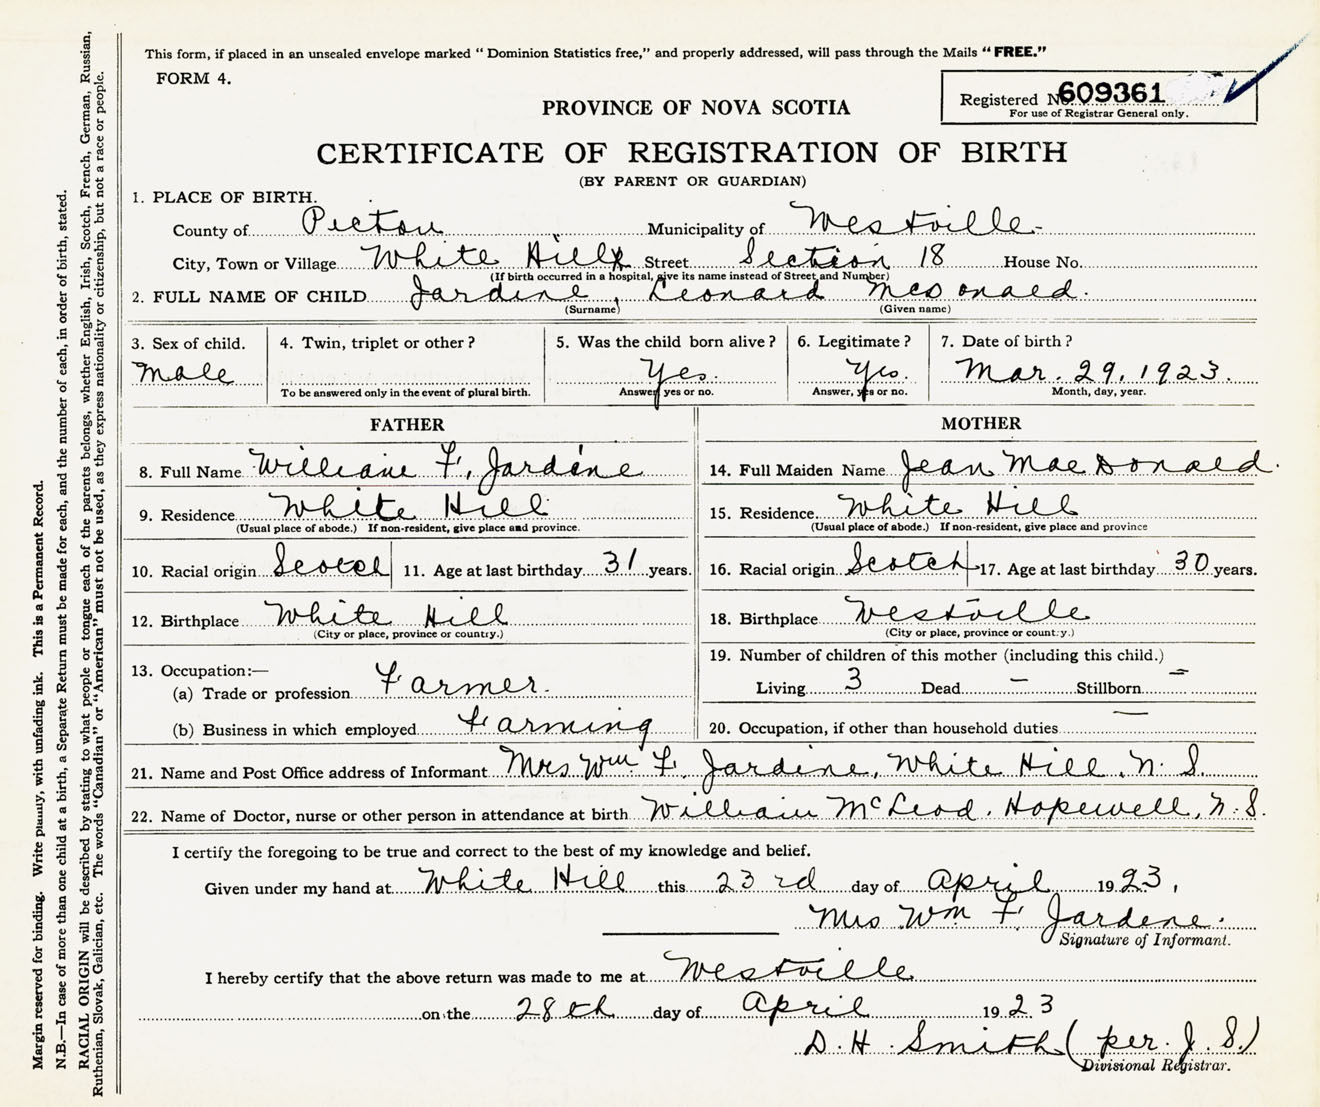 This form, if placed in an unsealed envelope marked " Dominion Statistics free," and properly addressed, will pass through the Mails " FREE."
FORM 4.
Registered No. 609361
For use of Registrar General only.
PROVINCE OF NOVA SCOTIA
CERTIFICATE OF REGISTRATION OF BIRTH
(BY PARENT OR GUARDIAN)
1. PLACE OF BIRTH.
County of Pictou Municipality of Westville
City, Town or Village White Hill Street Section 18 House No.
(If birth occurred in a hospital, give its name instead of Street and Number)
2. FULL NAME OF CHILD Jardine, Leonard McDonald.
(Surname) (Given name)
3. Sex of child. 4. Twin, triplet or other? 5. Was the child born alive? 6. Legitimate? 7. Date of birth?
Male Yes. Yes. Mar. 29, 1923.
To be answered only in the event of plural birth. Answer yes or no. Answer, yes or no. Month, day, year.
FATHER
8. Full Name William F. Jardine
9. Residence White Hill
(Usual place of abode.) If non-resident, give place and province.
10. Racial origin Scotch 11. Age at last birthday 31 years.
12. Birthplace White Hill
(City or place, province or country.)
13. Occupation:—
(a) Trade or profession Farmer.
(b) Business in which employed Farming
MOTHER
14. Full Maiden Name Jean MacDonald.
15. Residence White Hill
(Usual place of abode.) If non-resident, give place and province
16. Racial origin Scotch 17. Age at last birthday 30 years.
18. Birthplace Westville
(City or place, province or country.)
19. Number of children of this mother (including this child.)
Living 3 Dead — Stillborn —
20. Occupation, if other than household duties —
21. Name and Post Office address of Informant Mrs Wm F. Jardine, White Hill, N. S.
22. Name of Doctor, nurse or other person in attendance at birth William McLeod. Hopewell, N. S.
I certify the foregoing to be true and correct to the best of my knowledge and belief.
Given under my hand at White Hill this 23rd day of April 1923,
Mrs Wm F. Jardine.
Signature of Informant.
I hereby certify that the above return was made to me at Westville
on the 28th day of April 1923
D. H. Smith (per. J. S.)
Divisional Registrar.
Margin reserved for binding. Write plainly, with unfading ink. This is a Permanent Record.
N.B.—In case of more than one child at a birth, a Separate Return must be made for each, and the number of each, in order of birth, stated.
RACIAL ORIGIN will be described by stating to what people or tongue each of the parents belongs, whether English, Irish, Scotch, French, German, Russian,
Ruthenian, Slovak, Galician, etc. The words "Canadian" or "American" must not be used, as they express nationality or citizenship, but not a race or people.